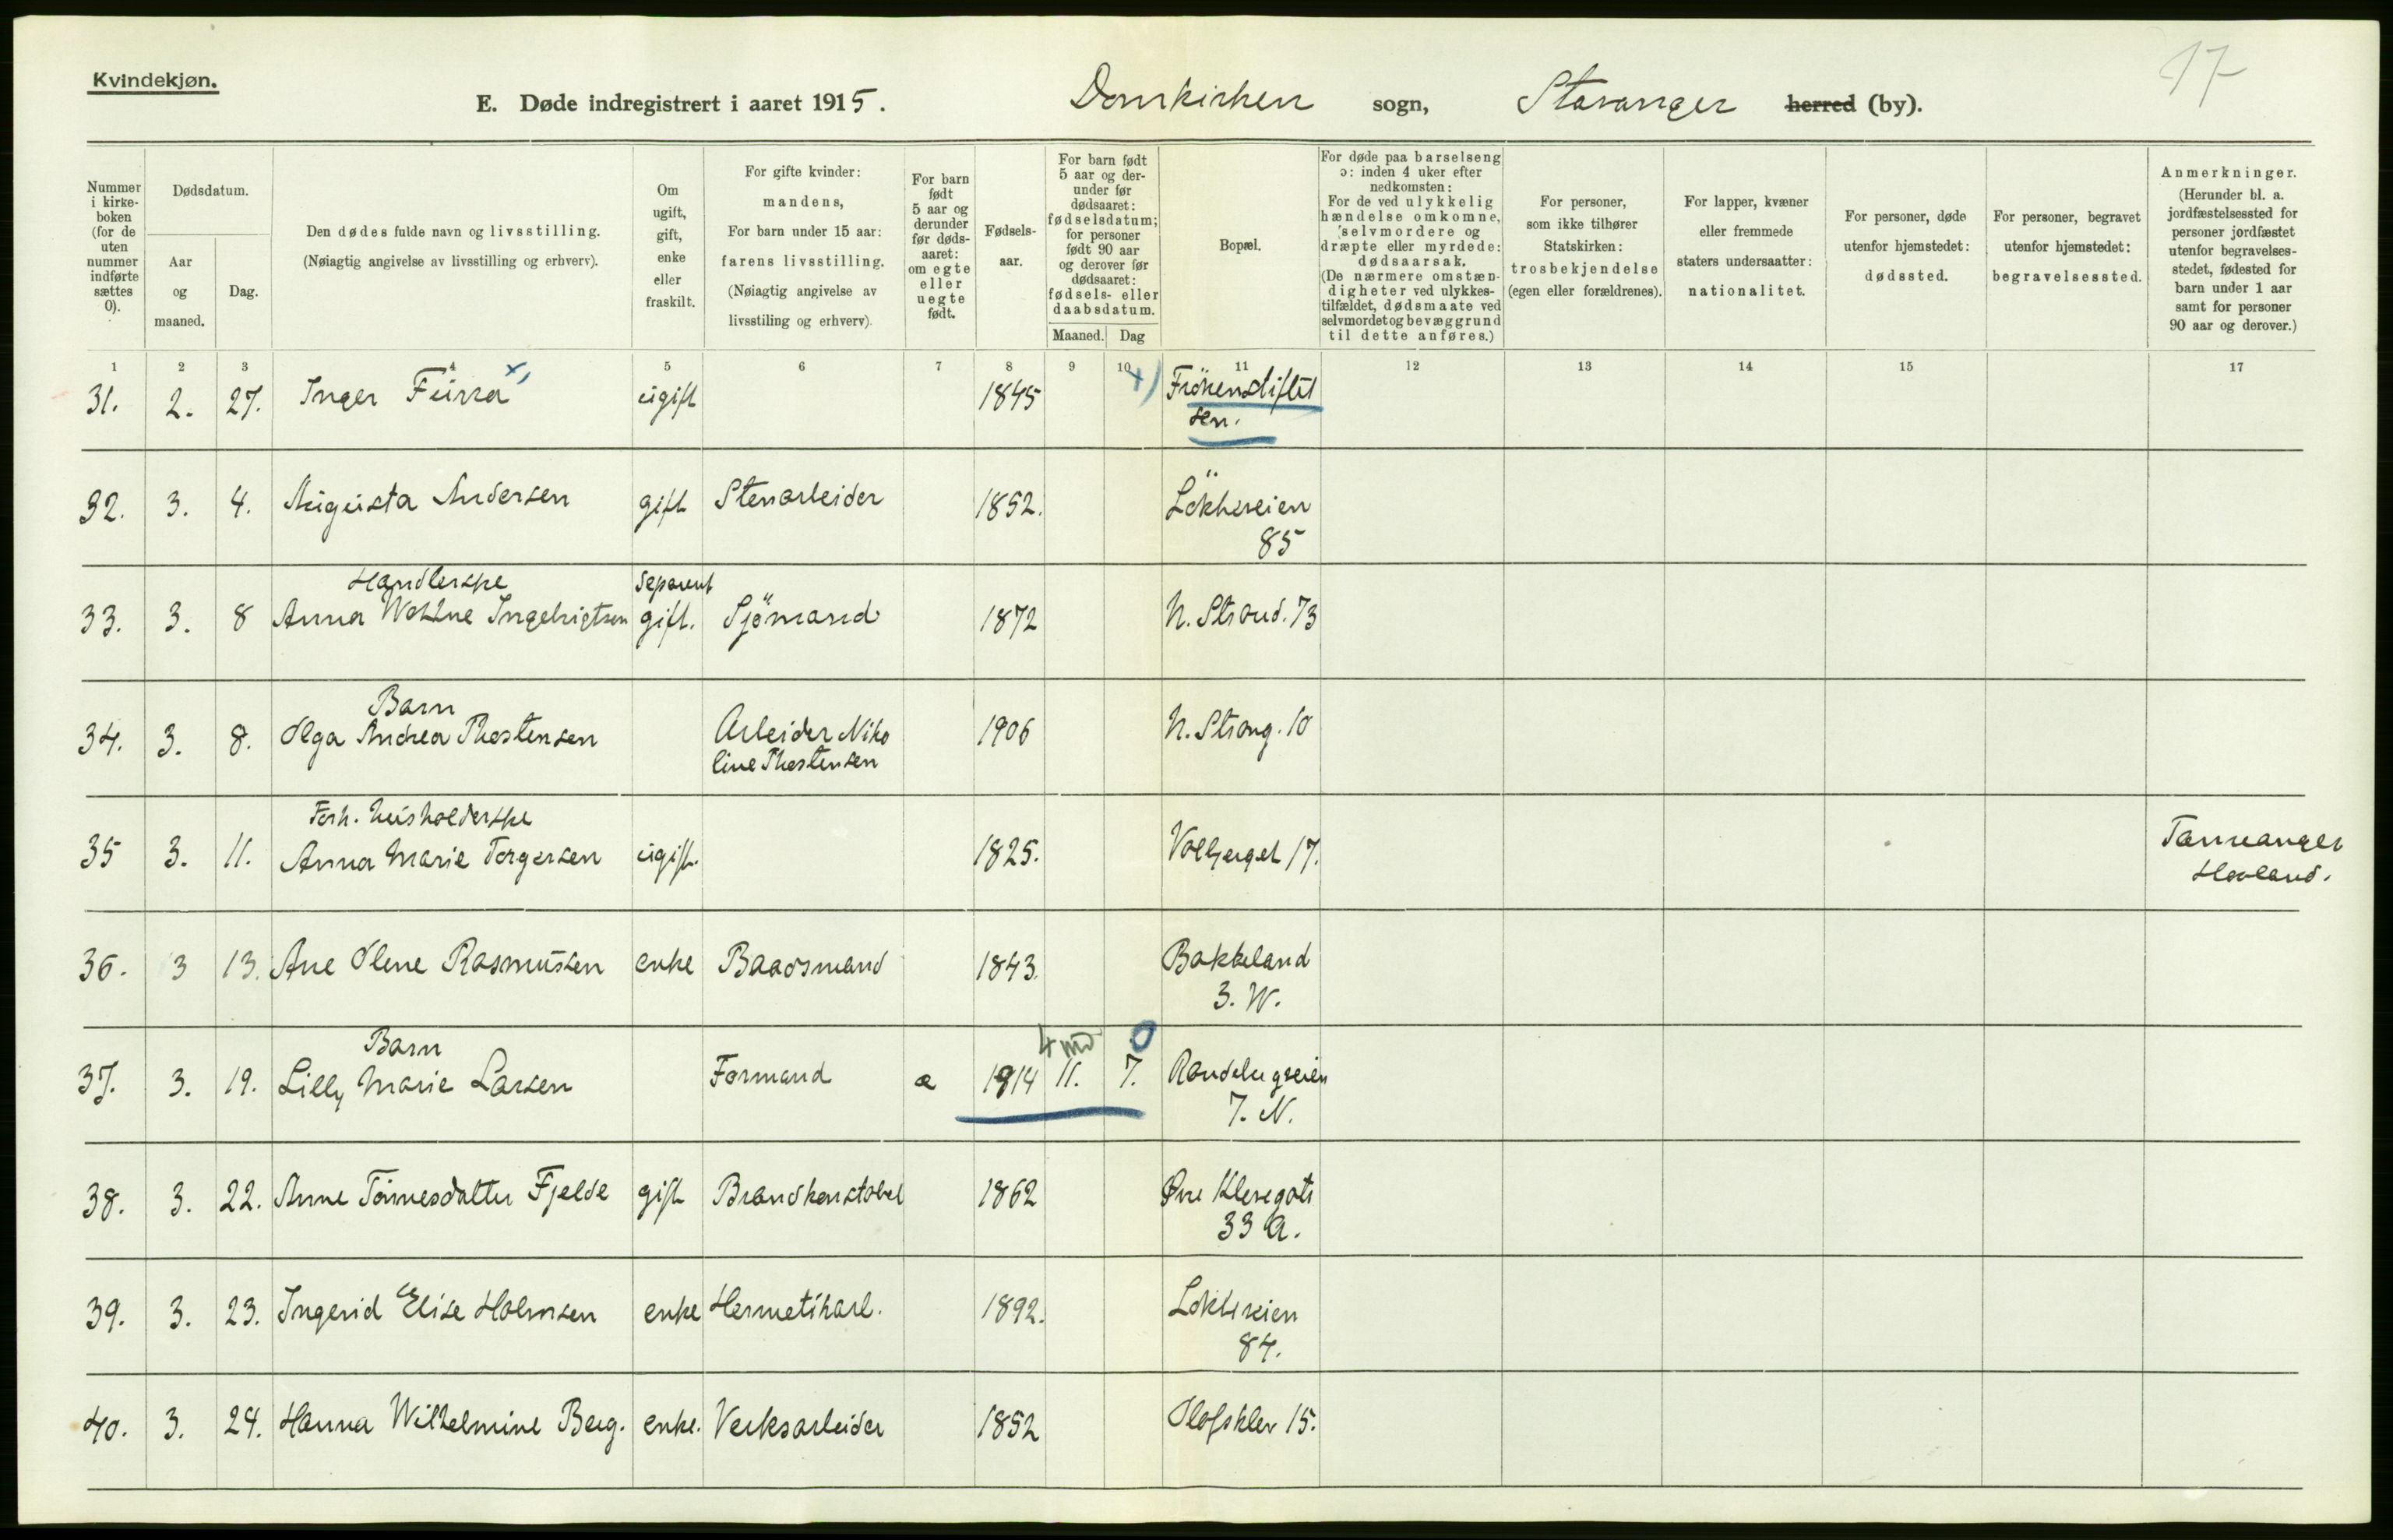 17
Kvindekjøn.
E. Døde indregistrert i aaret 1915. Domkirken sogn, Stavanger herred (by).
Nummer i kirke-boken (for de uten nummer indførte sættes 0).
Dødsdatum.
Aar og maaned.
Dag.
Den dødes fulde navn og livsstilling.
(Nøiagtig angivelse av livsstilling og erhverv).
Om ugift, gift, enke eller fraskilt.
For gifte kvinder: mandens,
For barn under 15 aar: farens livsstilling.
(Nøiagtig angivelse av livsstiling og erhverv).
For barn født 5 aar og derunder før døds-aaret: om egte eller uegte født.
Fødsels-aar.
For barn født 5 aar og der-under før dødsaaret: fødselsdatum; for personer født 90 aar og derover før dødsaaret: fødsels- eller daabsdatum.
Maaned. Dag
Bopæl.
For døde paa barselseng ɔ: inden 4 uker efter nedkomsten:
For de ved ulykkelig hændelse omkomne, selvmordere og dræpte eller myrdede: dødsaarsak.
(De nærmere omstæn-digheter ved ulykkes-tilfældet, dødsmaate ved selvmordet og bevæggrund til dette anføres.)
For personer, som ikke tilhører Statskirken: trosbekjendelse (egen eller forældrenes).
For lapper, kvæner eller fremmede staters undersaatter: nationalitet.
For personer, døde utenfor hjemstedet: dødssted.
For personer, begravet utenfor hjemstedet: begravelsessted.
Anmerkninger.
(Herunder bl. a. jordfæstelsessted for personer jordfæstet utenfor begravelses-stedet, fødested for barn under 1 aar samt for personer 90 aar og derover.)
1 2 3 4 5 6 7 8 9 10 11 12 13 14 15 17
31. 2. 27. Inger Furra x) ugift 1845 x) Frökenstiftel
sen.
32. 3. 4. Augusta Andersen gift Stenarbeider 1852. Lökkeveien
85
Handlerske Separert
33. 3. 8 Anna Wettne Ingebrigtsen gift. Sjömand 1872 N. Strand. 73
Barn
34. 3. 8. Olga Andrea Thorstensen Arbeider Niko
line Thorstensen 1906 N. Strang. 10
Forh. husholderske
35 3. 11. Anna Marie Torgersen ugift. 1825. Volbjerget 17. Tananger
Haaland.
36. 3 13. Ane Olene Rasmussen enke Baadsmand 1843. Bakkeland
3. W.
Barn 4 md 0
37. 3. 19. Lilly Marie Larsen Formand e 1914 11. 7. Randebergveien
7. N.
38. 3. 22. Anne Tönnesdatter Fjelde gift Brandkonstabel 1862 Øvre Klevegate
33 A.
39. 3. 23. Ingerid Elise Holmsen enke Hermetikarb. 1892. Lökkeveien
84.
40. 3. 24. Hanna Wilhelmine Berg. enke. Verksarbeider 1852 Olafsklev 15.